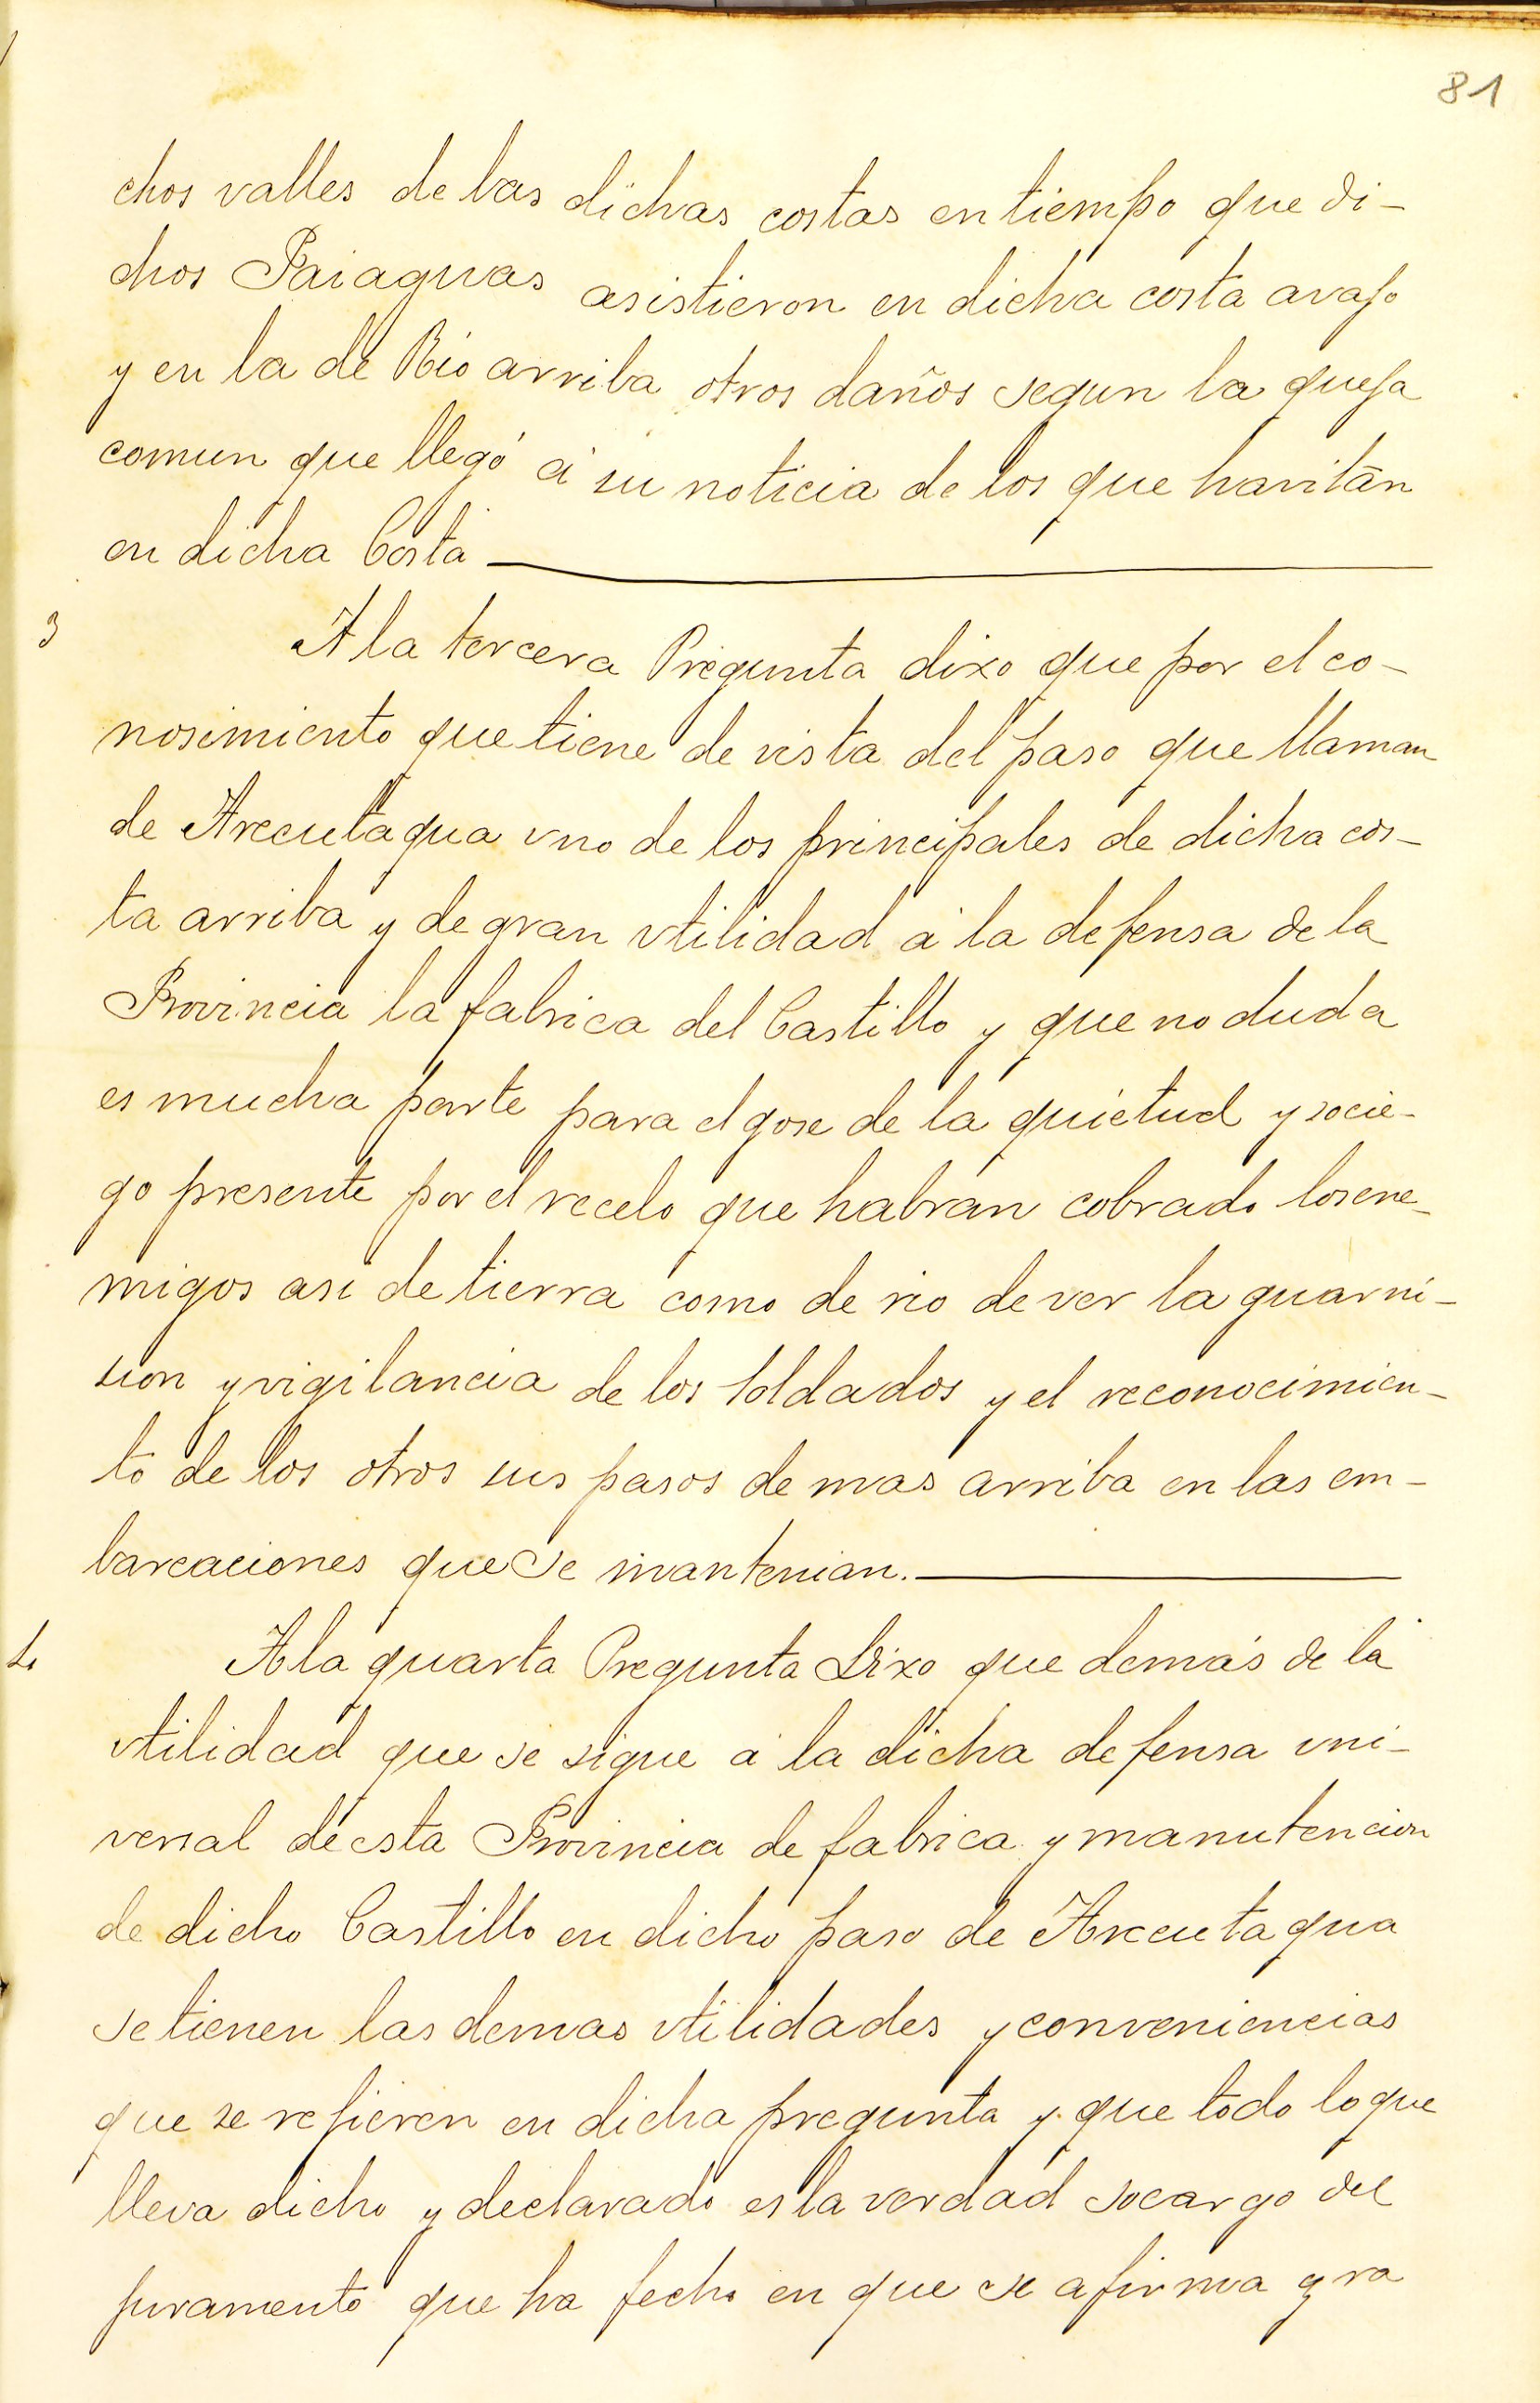 81
chos valles de las dichas costas en tiempo que di-
chos Paiaguas asistieron en dicha costa avajo
y en la de Rio arriba otros daños segun la queja
comun que llegó á su noticia de los que havitan
en dicha Costa
3 A la tercera Pregunta dixo que por el co-
nosimiento que tiene de vista del paso que llaman
de Arecutagua vno de los principales de dicha cos-
ta arriba y de gran vtilidad á la defensa de la
Provincia la fabrica del Castillo y que no duda
es mucha parte para el gose de la quietud y socie-
go presente por el recelo que habran cobrado los ene-
migos asi de tierra como de rio de ver la guarni-
sion y vigilancia de los Soldados y el reconocimien-
to de los otros sus pasos de mas arriba en las em-
barcaciones que se mantenian.
4 A la quarta Pregunta Dixo que demás de la
vtilidad que se sigue á la dicha defensa vni-
versal de esta Provincia de fabrica y manutencion
de dicho Castillo en dicho paso de Arecutagua
se tienen las demas vtilidades y conveniencias
que se refieren en dicha pregunta y que todo lo que
lleva dicho y declarado es la verdad socargo del
juramento que ha fecho en que se afirma y ra